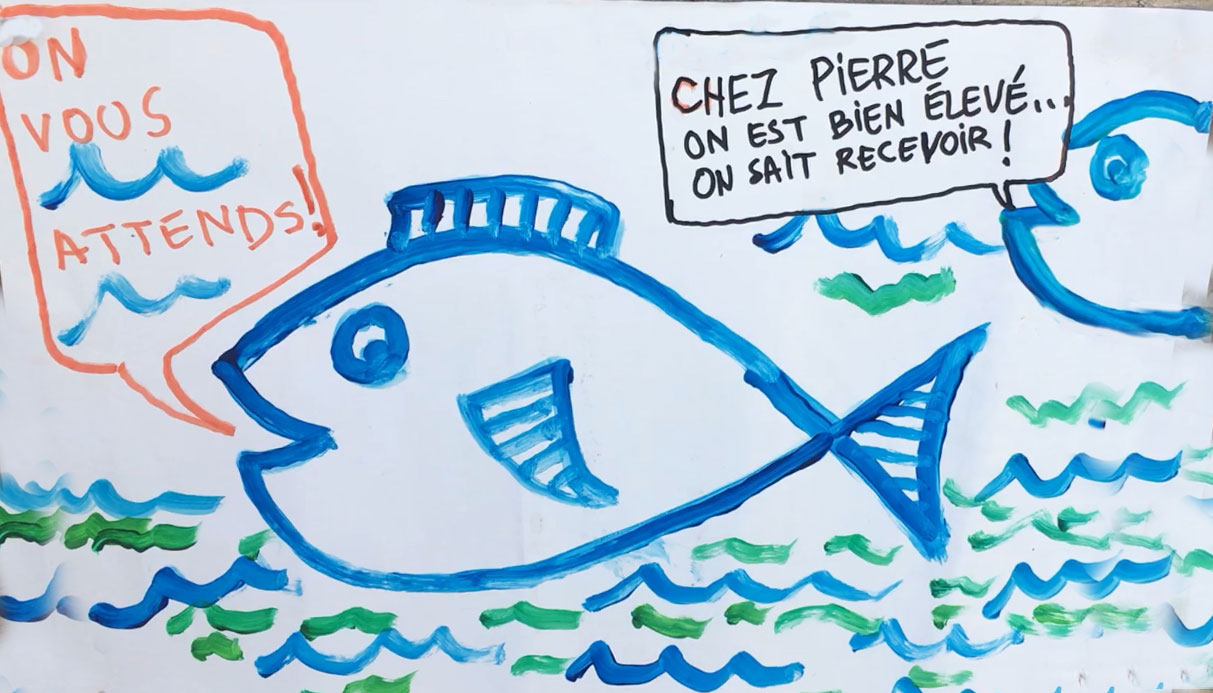 ON
VOUS
ATTENDS!
CHEZ PiERRE
ON EST BiEN ÉLEVÉ...
ON SAiT RECEVOiR!